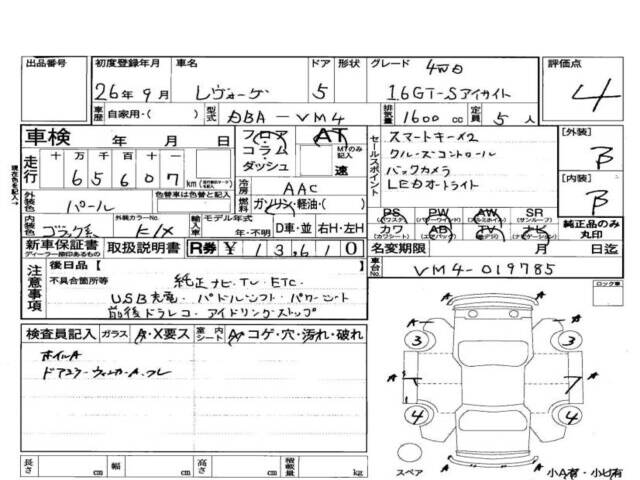 出品番号 初度登録年月 車名 ドア 形状 グレード 評価点
26年9月 レヴォーグ 5 4WD 16GT-Sアイサイト 4
車歴 自家用・( ) 型式 DBA-VM4 排気量 1600cc 定員 5人
車検 年 月 日 フロア コラム ダッシュ AT MTのみ記入 速
走行 十 万 千 百 十 一
65607 km
冷房 AAC
燃料 ガソリン・軽油・( )
セールスポイント
スマートキー×2
クルーズコントロール
バックカメラ
LEDオートライト
[外装] B
[内装] B
外装色 パール 色替車は色替前色
内装色 ブラック系 外装カラーNo. K1X 輸入車 モデル年式 年・不明 D車・並 右H・左H
PS PW AW SR (サンルーフ)
カワ AB TV ナビ 純正品のみ丸印
新車保証書 取扱説明書 R券 ¥13,610 名変期限 月 日迄
車台No. VM4-019785
注意事項 後日品【 】
不具合箇所等 純正ナビ・TV・ETC・
USB充電・パドルシフト・パワーシート
前後ドラレコ・アイドリングストップ
検査員記入 ガラス A・X要ス 室内シート A・コゲ・穴・汚れ・破れ
ホイルA
ドアミラーウィンカーA
ロック車
3 3
4 4
A A
スペア 小A有・小U有
長さ cm 幅 cm 高さ cm 積載量 kg
現在色を記入→